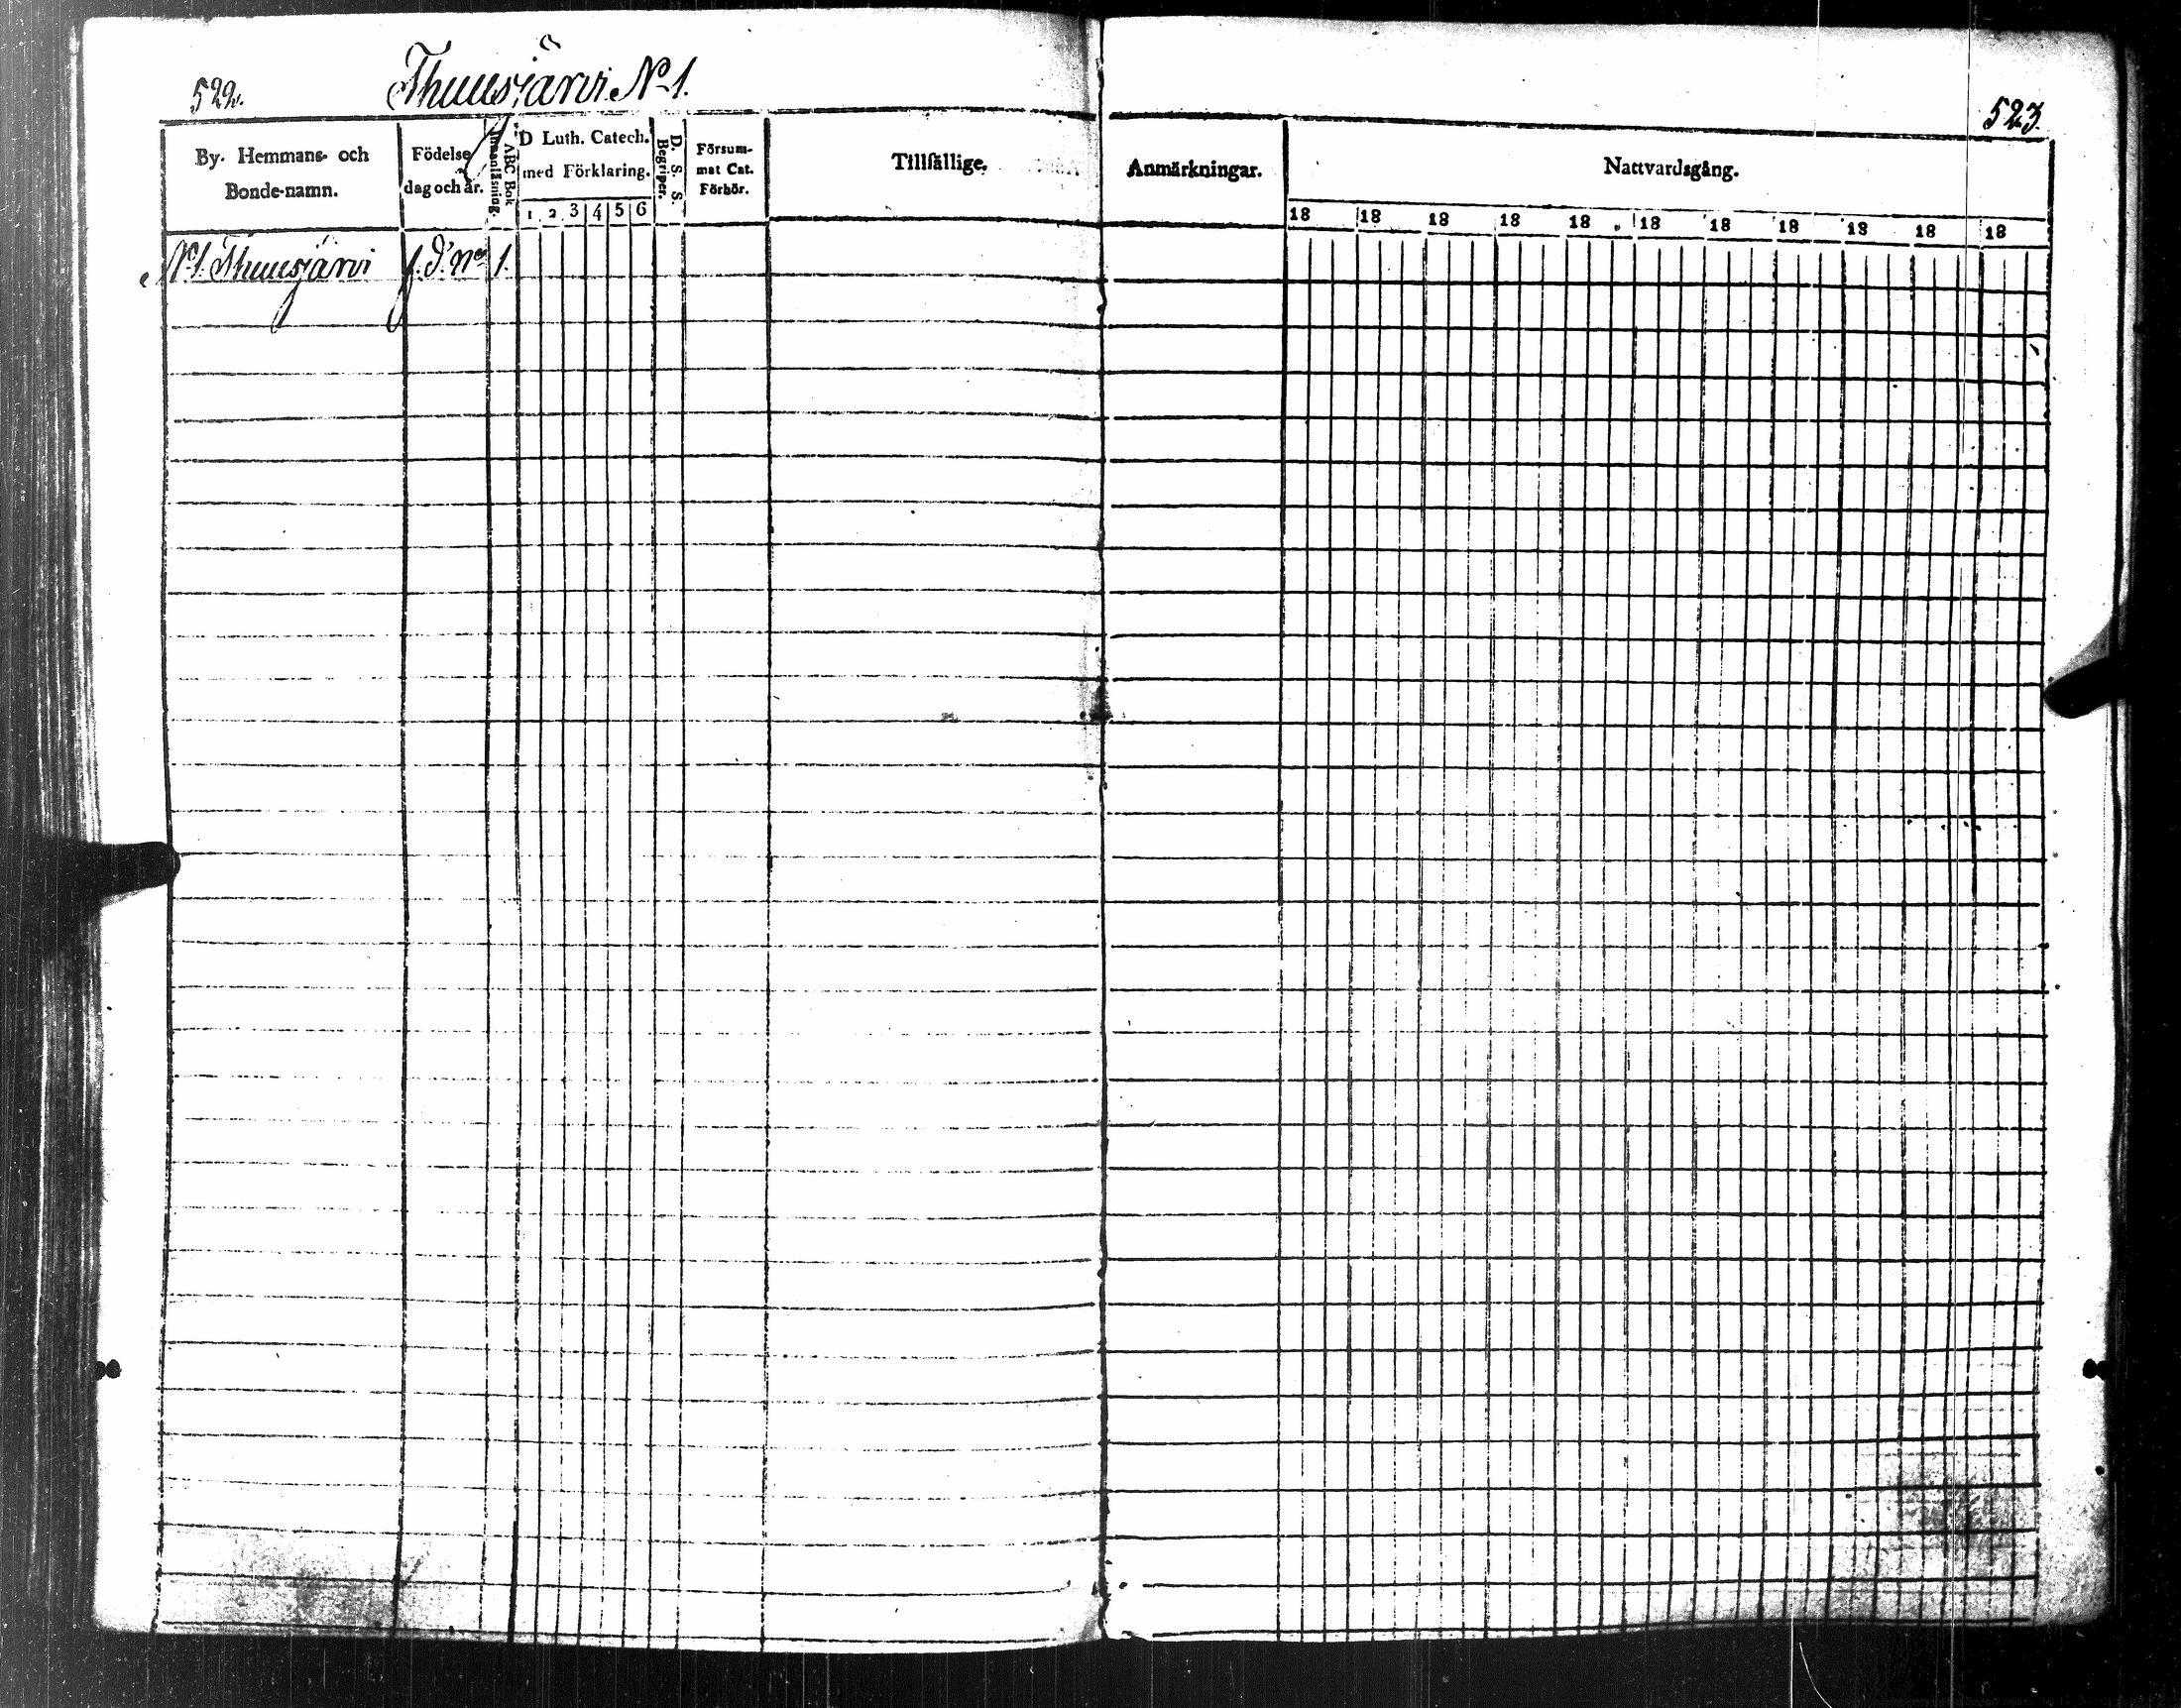 522.
Thuusjärvi No 1.
523.
By. Hemmans- och
Bonde-namn.
Födelse
dag och år.
Innanläsning.
ABC Bok
D Luth. Catech.
med Förklaring.
1 2 3 4 5 6
D. S. S.
Begriper.
Försum-
mat Cat.
Förhör.
Tillfällige.
Anmärkningar.
Nattvardsgång.
18 18 18 18 18 18 18 18 18 18 18
No 1. Thuusjärvi 1.